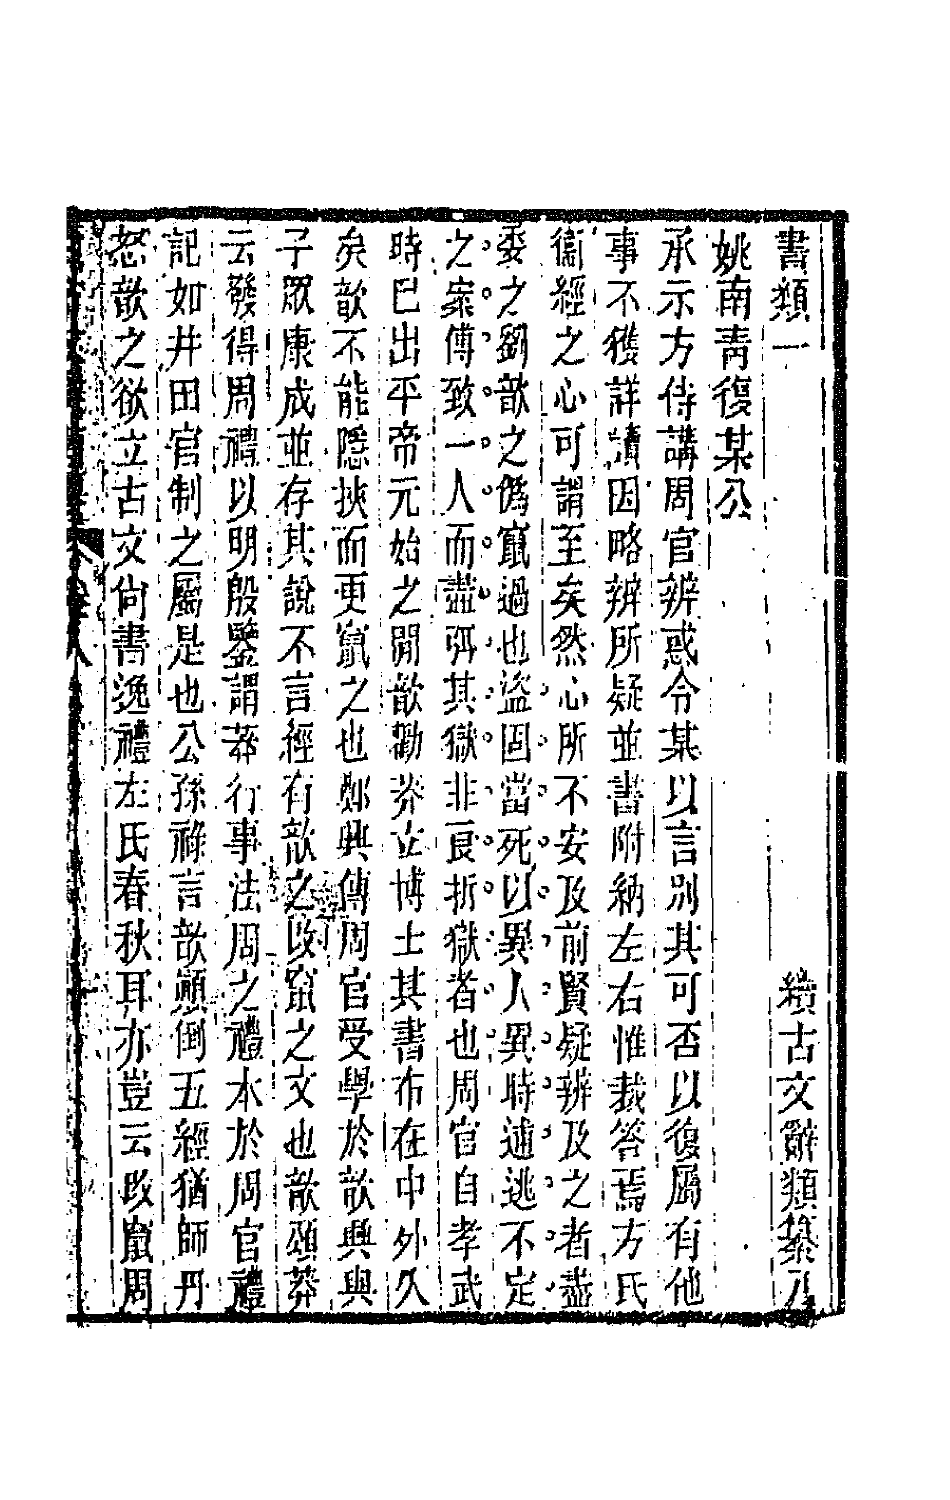 書類一　續古文辭類纂八
姚南靑復某公
承示方侍講周官辨惑令某以言別其可否以復屬有他
事不獲詳讀因略辨所疑並書附納左右惟裁答焉方氏
衞經之心可謂至矣然心所不安及前賢疑辨及之者盡
委之劉歆之僞竄過也盜固當死以異人異時逋逃不定
之案傅致一人而盡弭其獄非良折獄者也周官自孝武
時已出平帝元始之閒歆勸莽立博士其書布在中外久
矣歆不能隱挾而更竄之也鄭興傳周官受學於歆興與
子眾康成並存其說不言經有歆之改竄之文也歆頌莽
云發得周禮以明殷鑒謂莽行事法周之禮本於周官禮
記如井田官制之屬是也公孫祿言歆顚倒五經猶師丹
怒歆之欲立古文尙書逸禮左氏春秋耳亦豈云改竄周